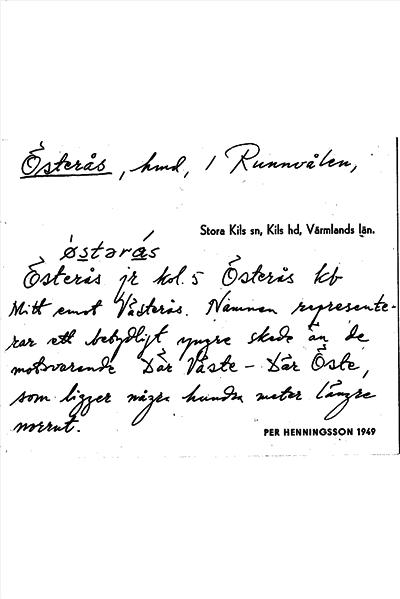 Österås, hmd, i Runnvålen,
Stora Kils sn, Kils hd, Värmlands län.
østərås
Österås jr kol. 5 Österås kb
Mitt emot Västerås. Namnen represente-
rar ett betydligt yngre skede än de
motsvarande Där Väste - Där Öste,
som ligger några hundra meter längre
norrut.
PER HENNINGSSON 1949